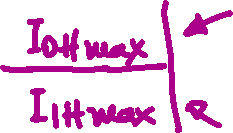 I0Hmax
I1Hmax